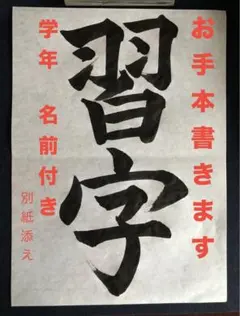 お手本書きます
習字
学年 名前付き
別紙添え